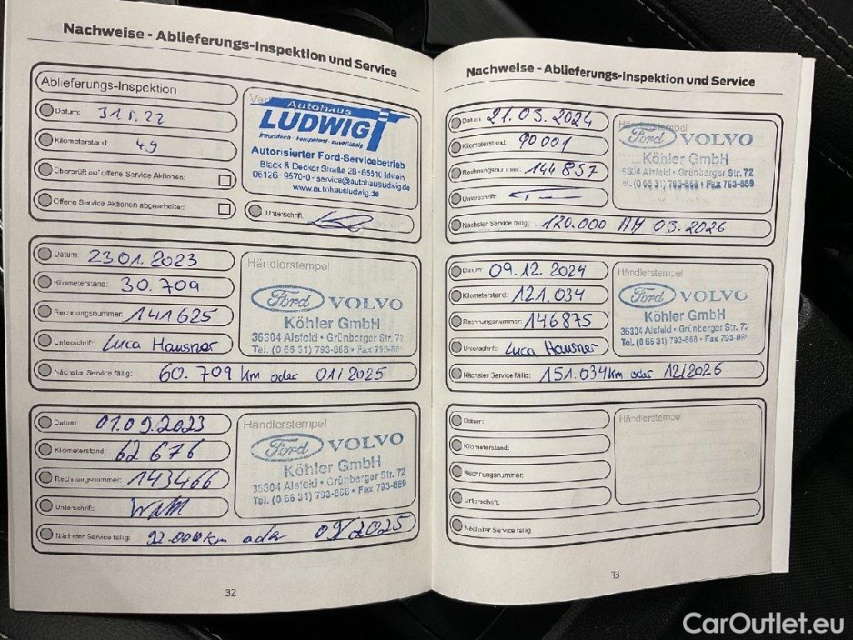 Nachweise - Ablieferungs-Inspektion und Service
Ablieferungs-Inspektion
Datum:
Kilometerstand: 49
Überprüft auf offene Service Aktionen:
Offene Service Aktionen abgearbeitet:
Autohaus
LUDWIG
freundlich - kompetent - zuverlässig
Autorisierter Ford-Servicebetrieb
Black & Decker Straße 28 - 65510 Idstein
06126 - 9570-0 - service@autohausludwig.de
www.autohausludwig.de
Unterschrift:
Datum: 23.01.2023
Kilometerstand: 30.709
Rechnungsnummer: 141625
Unterschrift: Luca Hausner
Nächster Service fällig: 60.709 Km oder 01/2025
Händlerstempel
Ford VOLVO
Köhler GmbH
36304 Alsfeld • Grünberger Str. 72
Tel. (0 66 31) 793-868 • Fax 793-869
Datum: 01.09.2023
Kilometerstand: 62 676
Rechnungsnummer: 143466
Unterschrift:
Nächster Service fällig: 92.000 km oder 09/2025
Händlerstempel
Ford VOLVO
Köhler GmbH
36304 Alsfeld • Grünberger Str. 72
Tel. (0 66 31) 793-868 • Fax 793-869
32
Nachweise - Ablieferungs-Inspektion und Service
Datum: 21.03.2024
Kilometerstand: 90 001
Rechnungsnummer: 144857
Unterschrift:
Nächster Service fällig: 120.000 03.2026
Händlerstempel
Ford VOLVO
Köhler GmbH
6304 Alsfeld • Grünberger Str. 72
el. (0 66 31) 793-868 • Fax 793-869
Datum: 09.12.2024
Kilometerstand: 121.034
Rechnungsnummer: 146875
Unterschrift: Luca Hausner
Nächster Service fällig: 151.034 Km oder 12/2026
Händlerstempel
Ford VOLVO
Köhler GmbH
36304 Alsfeld • Grünberger Str. 72
Tel. (0 66 31) 793-868 • Fax 793-869
Datum:
Kilometerstand:
Rechnungsnummer:
Unterschrift:
Nächster Service fällig:
Händlerstempel
CarOutlet.eu